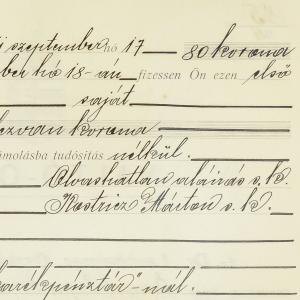 i szeptember hó 17 80 korona
ber hó 18-án fizessen Ön ezen első
saját
czvan korona
ámolásba tudósítás nélkül.
Olvashatlan aláírás s. k.
Kostricz Márton s. k.
arékpénztár"-nál.